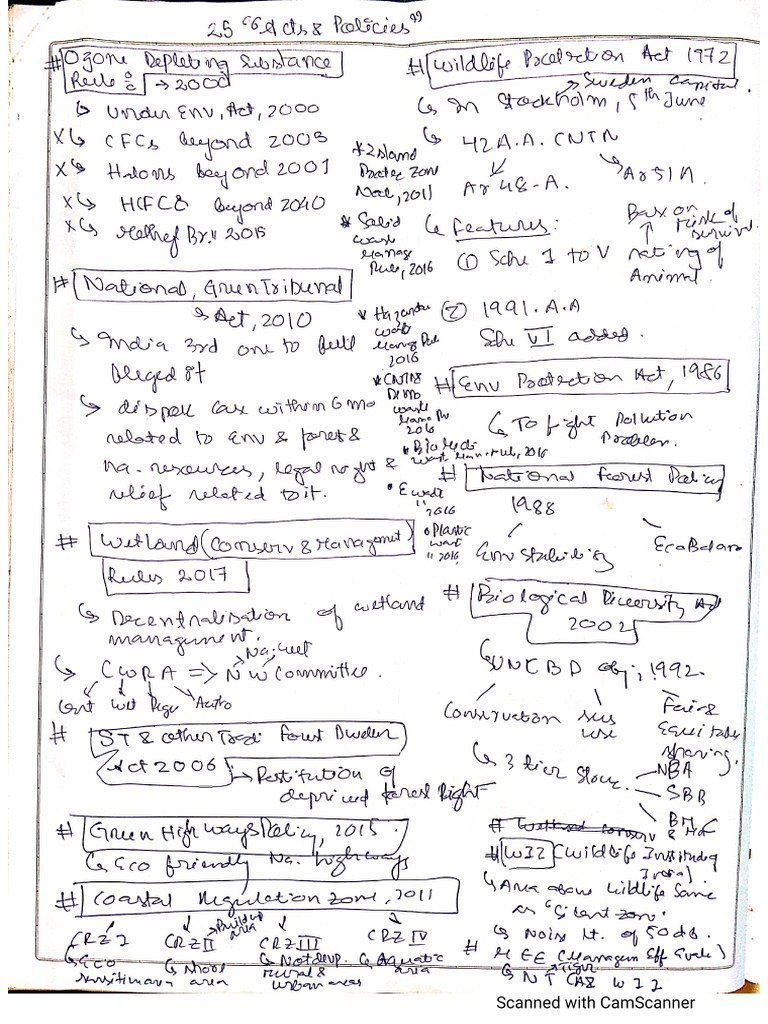 25 "Acts & Policies"
# Ozone Depleting Substance
Rule : → 2000
↳ Under Env, Act, 2000
X↳ CFCs beyond 2003
X↳ Halons beyond 2001
X↳ HCFC8 beyond 2040
X↳ Br." 2015
# National, Green Tribunal
↳ Act, 2010
↳ India 3rd one to full
↳ case within 6 mo
related to Env & forest &
na. resources, legal right &
relief related to it.
# Wetland (Conserv & Management)
Rules 2017
↳ Decentralisation of wetland
management.
↳ CWRA => NW Committee.
→ Na. Wet
Cent Wet Regu Autho
# ST & Other Tradi Forest Dweller
Act 2006 ↳ Restitution of
deprived forest Right
# Green Highways Policy, 2015.
↳ Eco friendly Na. highways
# Coastal Regulation Zone, 2011
CRZ I
↳ Eco
area
CRZ II → Buildup area
↳ Shore
area
CRZ III
↳ Not devp.
rural &
urban areas
CRZ IV
↳ Aquatic
area
* Island
Protec Zon
Not, 2011
* Solid
waste
Manag
Rule, 2016
* Hazardou
wast
Manag Rule
2016
* CNTN
Demo
waste
Mana Ru
2016
* Bio Medi
wast Man. rule, 2016
• E wast
" 2016
• Plastic
wast
" 2016
# Wildlife Protection Act 1972
→ Sweden Capital.
↳ In Stockholm, 5th June
↳ 42 A.A. CNTN
Ar 48-A.
Ar 51A.
↳ Features:
① Sche I to V rating of
Animal.
Bas on
Risk of
Survival
② 1991. A.A
Sche VI added.
# Env Protection Act, 1986
↳ To fight Pollution
Problem.
# National Forest Policy
1988
Env Stability
Eco Balan
# Biological Diversity Act
2002
↳ UNCBD obj; 1992.
Conservation
sus
use
Fair &
Equitable
sharing.
↳ 3 tier Struc.
NBA
SBB
# WII (Wildlife Institute of
India)
↳ Area above wildlife Same
as "Silent zone".
↳ Noise lt. of 50 db.
# MEE (Managem Eff Evalu)
↳ NTCA & WII
Tiger
Scanned with CamScanner